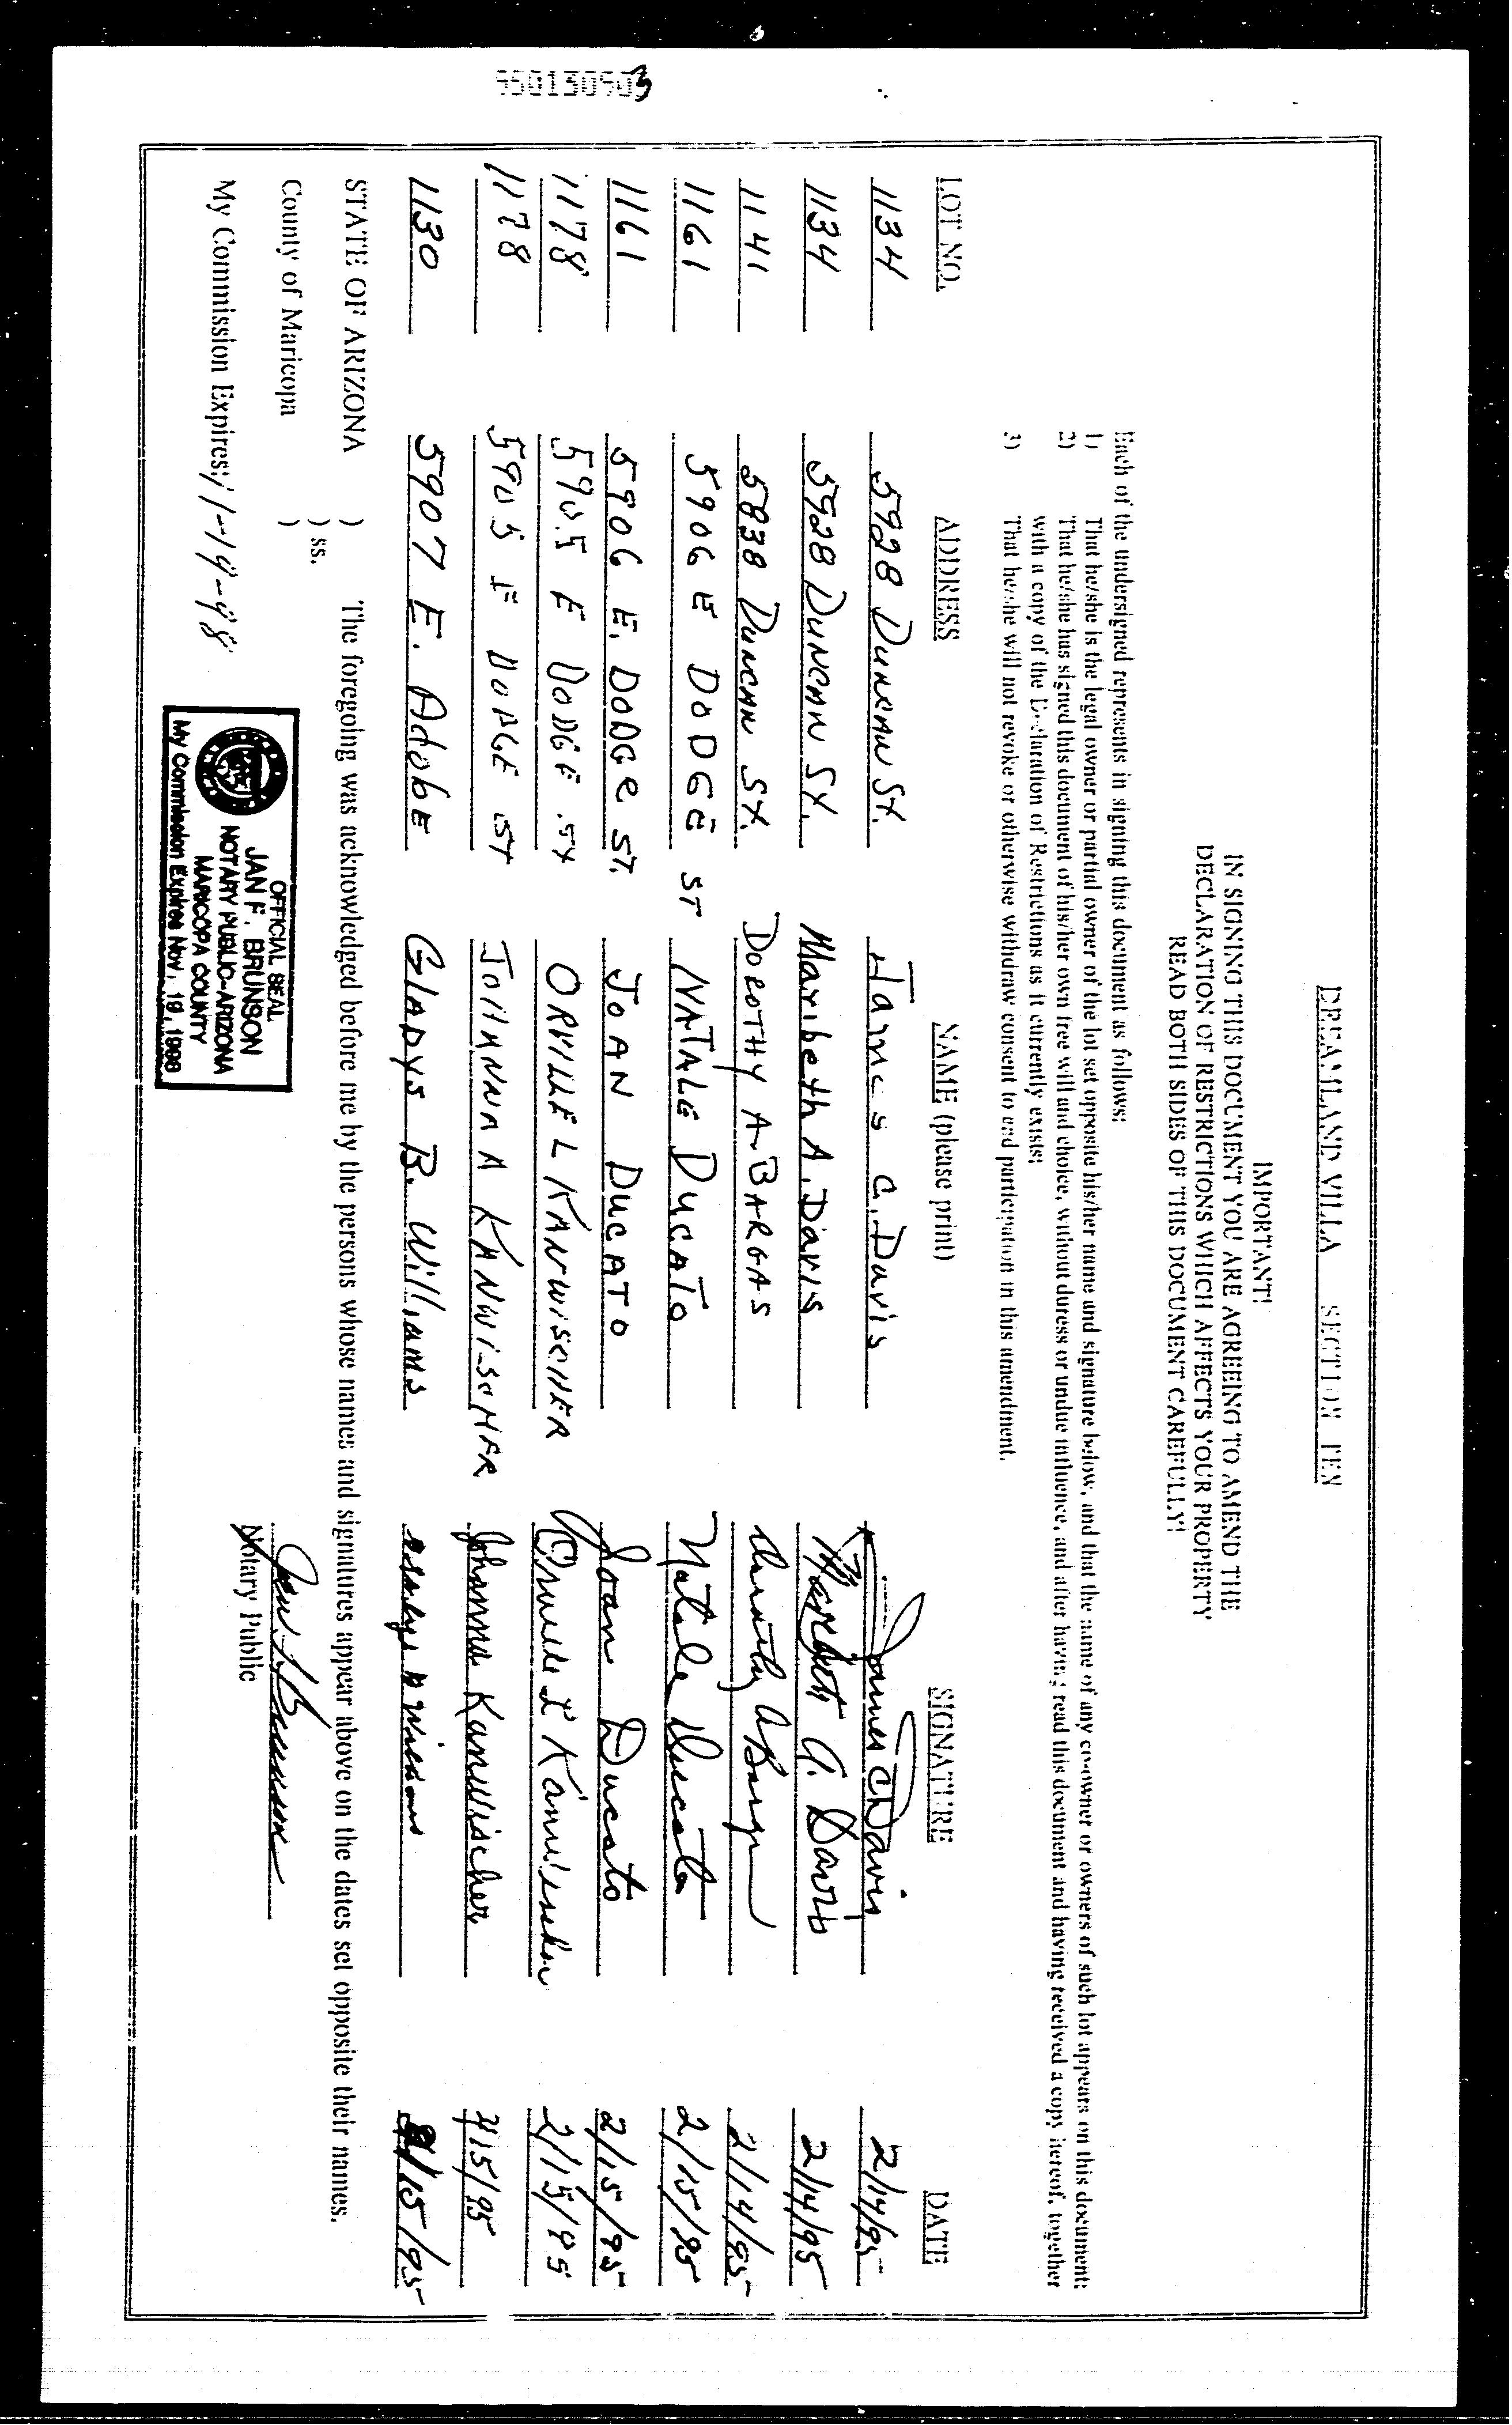 950130903
DREAMLAND VILLA SECTION TEN
IMPORTANT!
IN SIGNING THIS DOCUMENT YOU ARE AGREEING TO AMEND THE
DECLARATION OF RESTRICTIONS WHICH AFFECTS YOUR PROPERTY
READ BOTH SIDES OF THIS DOCUMENT CAREFULLY!
Each of the undersigned represents in signing this document as follows:
1) That he/she is the legal owner or partial owner of the lot set opposite his/her name and signature below, and that the name of any co-owner or owners of such lot appears on this document;
2) That he/she has signed this document of his/her own free will and choice, without duress or undue influence, and after having read this document and having received a copy hereof, together
with a copy of the Declaration of Restrictions as it currently exists;
3) That he/she will not revoke or otherwise withdraw consent to and participation in this amendment.
LOT NO. ADDRESS NAME (please print) SIGNATURE DATE
1134 5928 Duncan St. James C. Davis James C Davis 2/14/95
1134 5928 Duncan St. Maribeth A. Davis Maribeth A. Davis 2/14/95
1141 5838 Duncan St. DOROTHY A BARGAS Dorothy A Bargas 2/14/95
1161 5906 E DODGE ST NATALE DUCATO Natale Ducato 2/15/95
1161 5906 E. DODGE ST. JOAN DUCATO Joan Ducato 2/15/95
1178 5905 E DODGE ST ORVILLE L KANWISCHER Orville L Kanwischer 2/15/95
1178 5905 E DODGE ST JOHANNA KANWISCHER Johanna Kanwischer 2/15/95
1130 5907 E. Adobe GLADYS B. Williams Gladys B Williams 2/15/95
STATE OF ARIZONA )
) ss.
County of Maricopa )
The foregoing was acknowledged before me by the persons whose names and signatures appear above on the dates set opposite their names.
My Commission Expires: 11-19-98
OFFICIAL SEAL
JAN F. BRUNSON
NOTARY PUBLIC-ARIZONA
MARICOPA COUNTY
My Commission Expires Nov. 19, 1998
Jan F Brunson
Notary Public